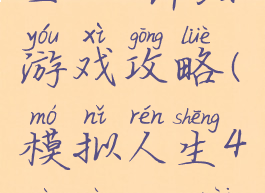 yóu xì gōng lüè
游戏攻略(
mó nǐ rén shēng
模拟人生4